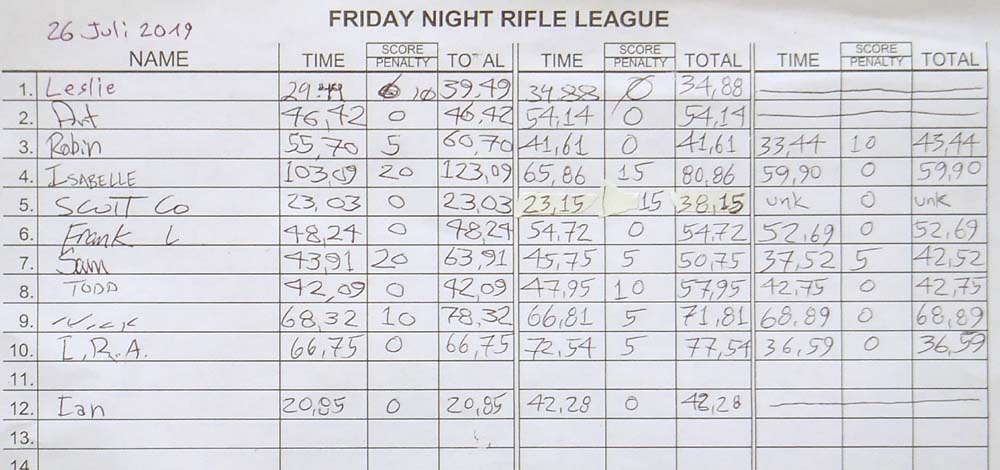 26 Juli 2019
FRIDAY NIGHT RIFLE LEAGUE
NAME TIME SCORE PENALTY TOTAL TIME SCORE PENALTY TOTAL TIME SCORE PENALTY TOTAL
1. Leslie 29.49 10 39,49 34,88 0 34,88
2. Art 46,42 0 46,42 54,14 0 54,14
3. Robin 55,70 5 60,70 41,61 0 41,61 33,44 10 43,44
4. ISABELLE 103,09 20 123,09 65,86 15 80,86 59,90 0 59,90
5. SCOTT Co 23,03 0 23,03 23,15 15 38,15 unk 0 unk
6. Frank L 48,24 0 48,24 54,72 0 54,72 52,69 0 52,69
7. Sam 43,91 20 63,91 45,75 5 50,75 37,52 5 42,52
8. TODD 42,09 0 42,09 47,95 10 57,95 42,75 0 42,75
9. 68,32 10 78,32 66,81 5 71,81 68,89 0 68,89
10. I.R.A. 66,75 0 66,75 72,54 5 77,54 36,59 0 36,59
11.
12. Ian 20,85 0 20,85 42,28 0 42,28
13.
14